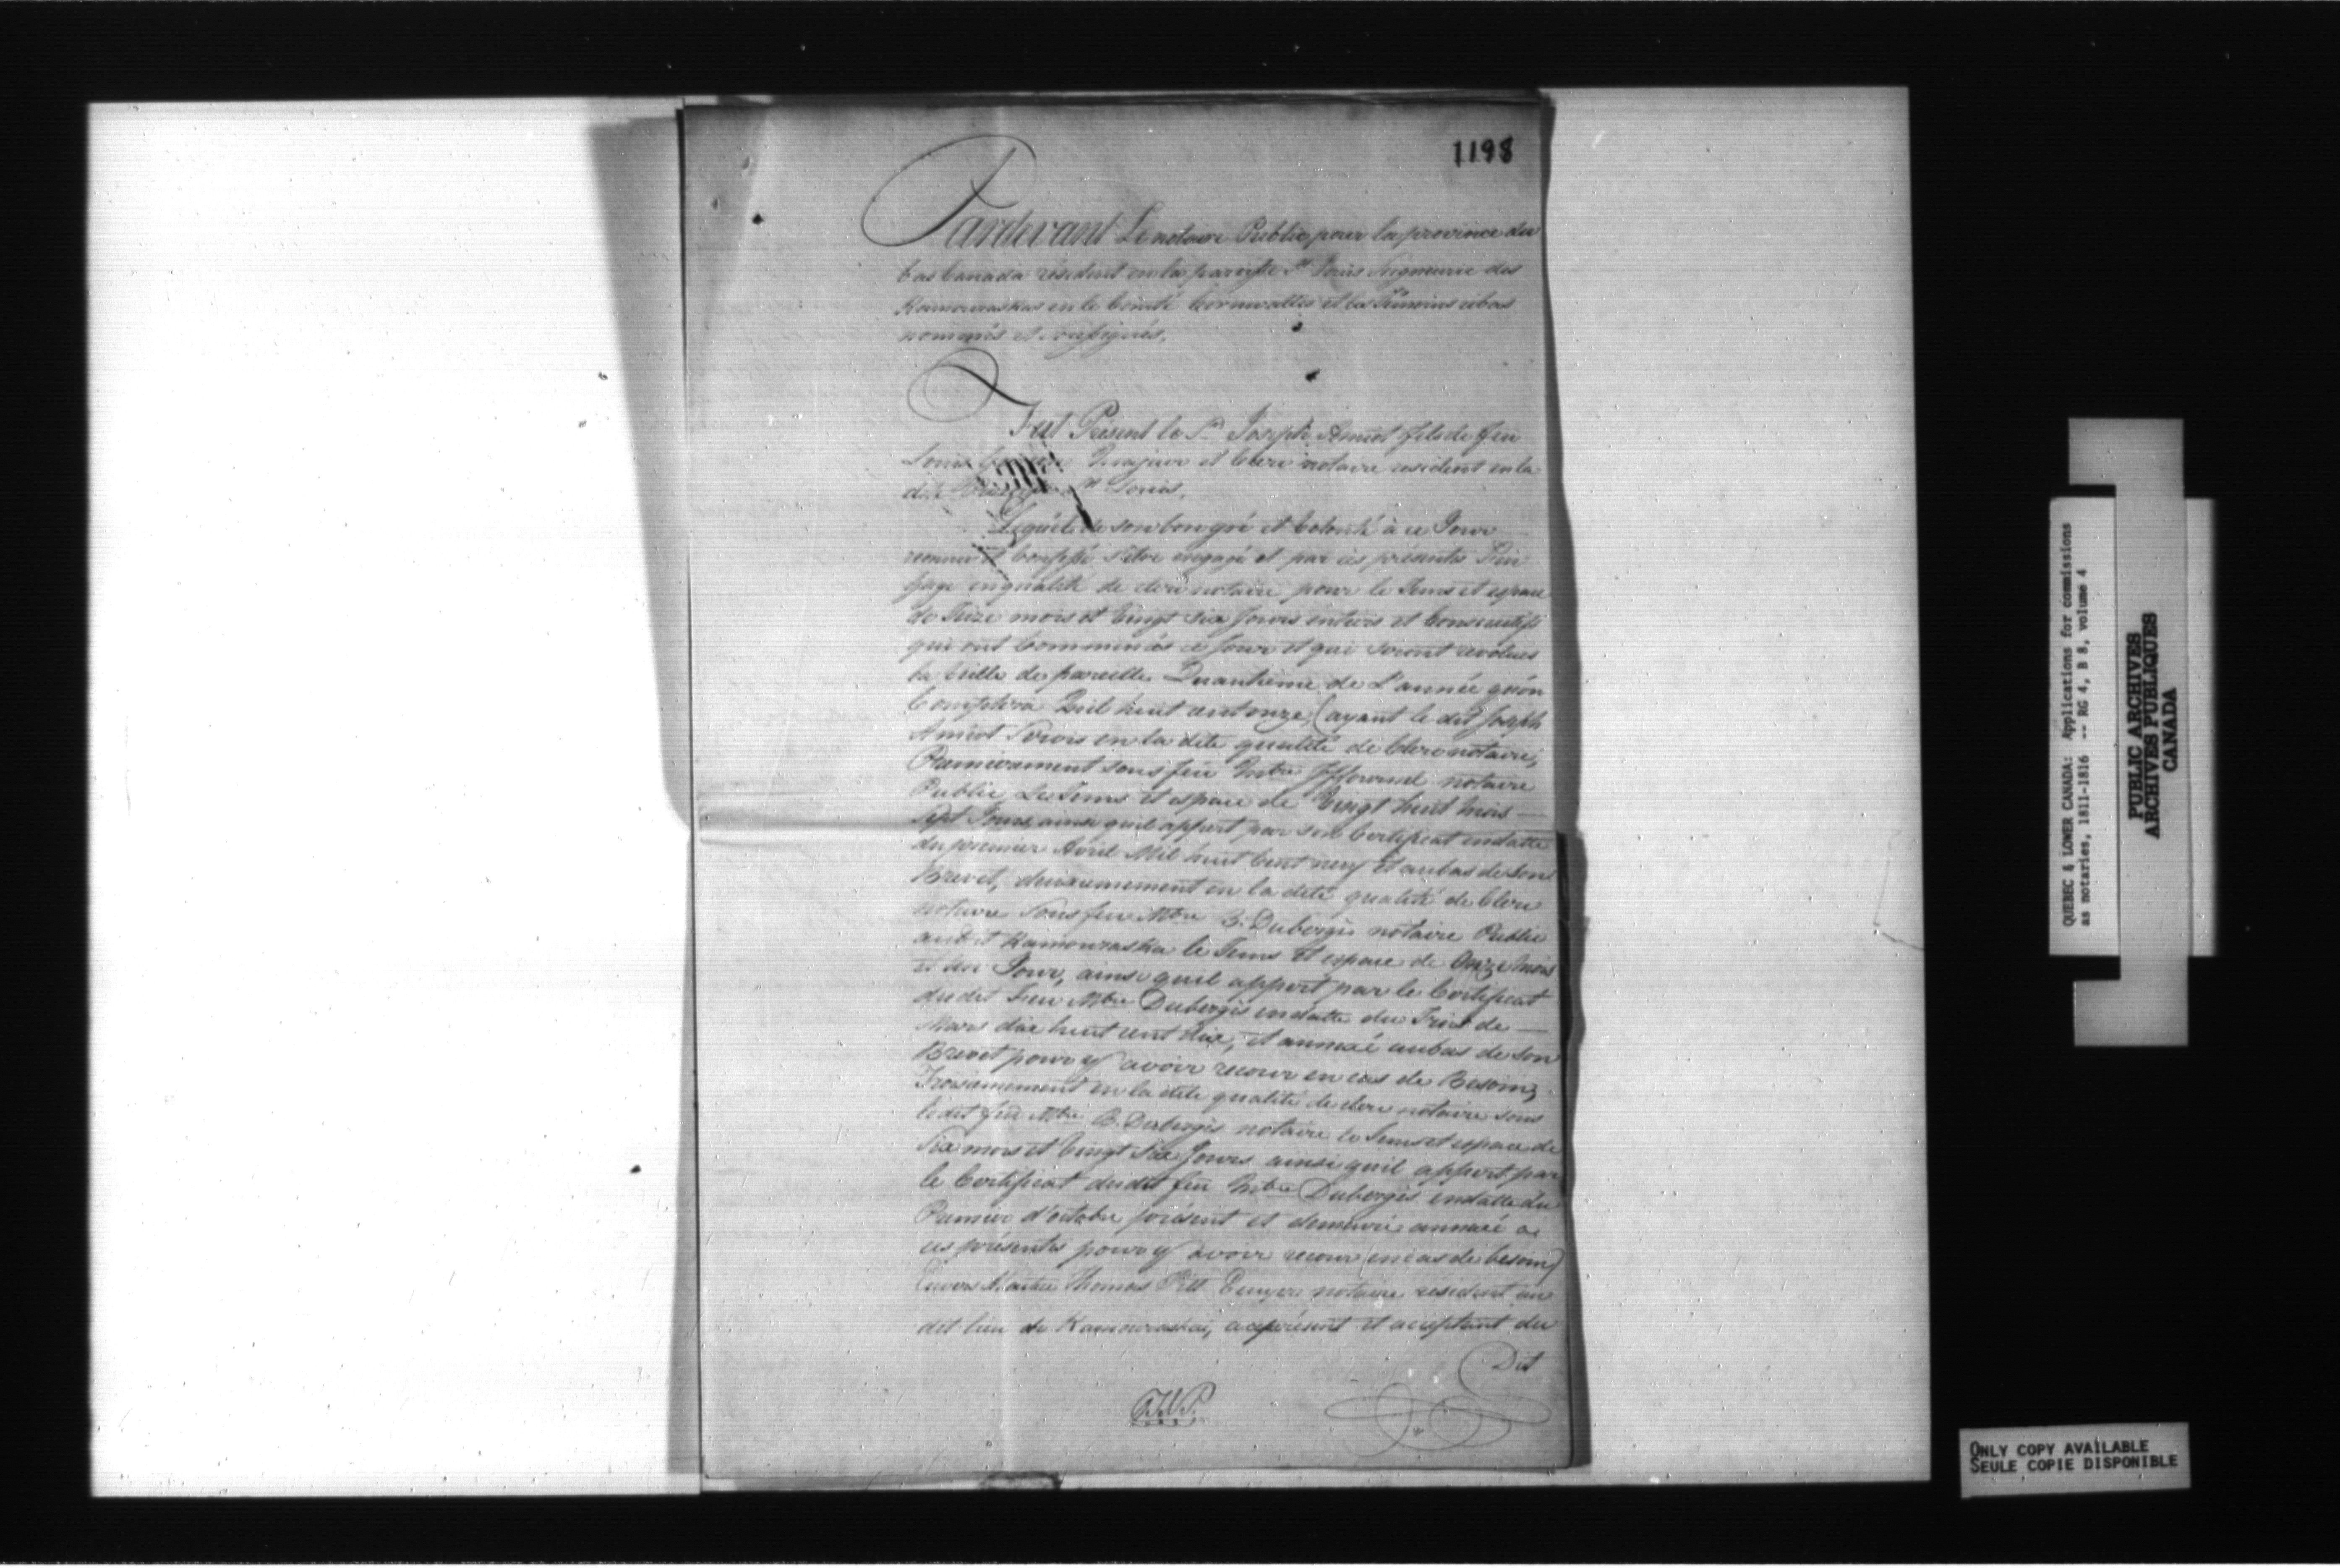 1198
Pardevant Le notaire Public pour la province du
bas Canada résident en la paroisse St Louis Seigneurie des
Kamouraskas en le Comté Cornwallis et les Témoins cibas
nommés et soussignés.
Fut Présent le Sr Joseph Amiot fils de feu
Louis majeur et Clerc notaire résident en la
dite St Louis,
Lequel de son bon gré et Volonté à ce Jour
reconnu et Confessé s'être engagé et par ces présentes S'en
gage en qualité de clerc notaire pour le Tems et espace
de Seize mois et Vingt Six Jours entiers et Consecutifs
qui ont Commencés ce Jour et qui seront revolues
la veille de pareille Quantieme de L'année qu'on
Comptera Mil huit cent onze, (ayant le dit Joseph
Amiot Servis en la dite qualité de Clerc notaire,
Premierement sous feu Mtre notaire
Public Le Tems et espace de Vingt huit Mois
Sept Jours, ainsi quil appert par son Certificat endatte
du premier Avril Mil huit Cent neuf et aubas de son
Brevet, deuxiemement en la dite qualité de Clerc
notaire Sous feu Mtre B. Dubergès notaire Public
audit Kamouraska le Tems et espace de Onze Mois
et un Jour, ainsi quil appert par le Certificat
dudit Feu Mtre Dubergès endatte du Trois de
Mars dix huit cent dix, et annexé aubas de son
Brevet pour y avoir recour en cas de Besoin,
Troisiemement en la dite qualité de clerc notaire sous
le dit feu Mtre B. Dubergès notaire le Tems et espace de
Six mois et Vingt Six Jours ainsi quil appert par
le Certificat dudit feu Mtre Dubergès endatte du
Premier d'octobre présent et demeuré annexé a
ces présentes pour y avoir recour en cas de besoin)
Envers Maitre Thomas Pitt notaire resident au
dit lieu de Kamouraska, a ce présent et acceptant du
Dit
QUEBEC & LOWER CANADA: Applications for commissions
as notaries, 1811-1816 -- RG 4, B 8, volume 4
PUBLIC ARCHIVES
ARCHIVES PUBLIQUES
CANADA
ONLY COPY AVAILABLE
SEULE COPIE DISPONIBLE